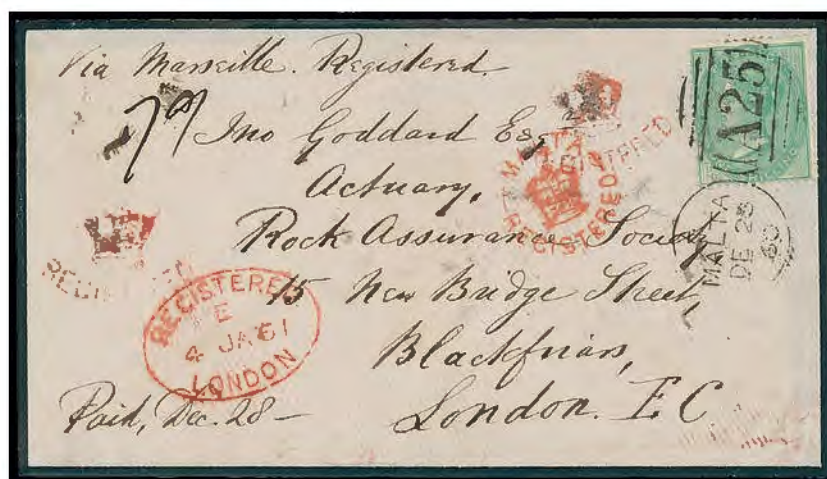 Via Marseille. Registered.
A25
79
Jno Goddard Esq
Actuary,
Rock Assurance Society
15 New Bridge Street,
Blackfriars,
London. E C
Paid, Dec. 28 —
MALTA
REGISTERED
MALTA
DE 28
60
REGISTERED
E
4 JA 61
LONDON